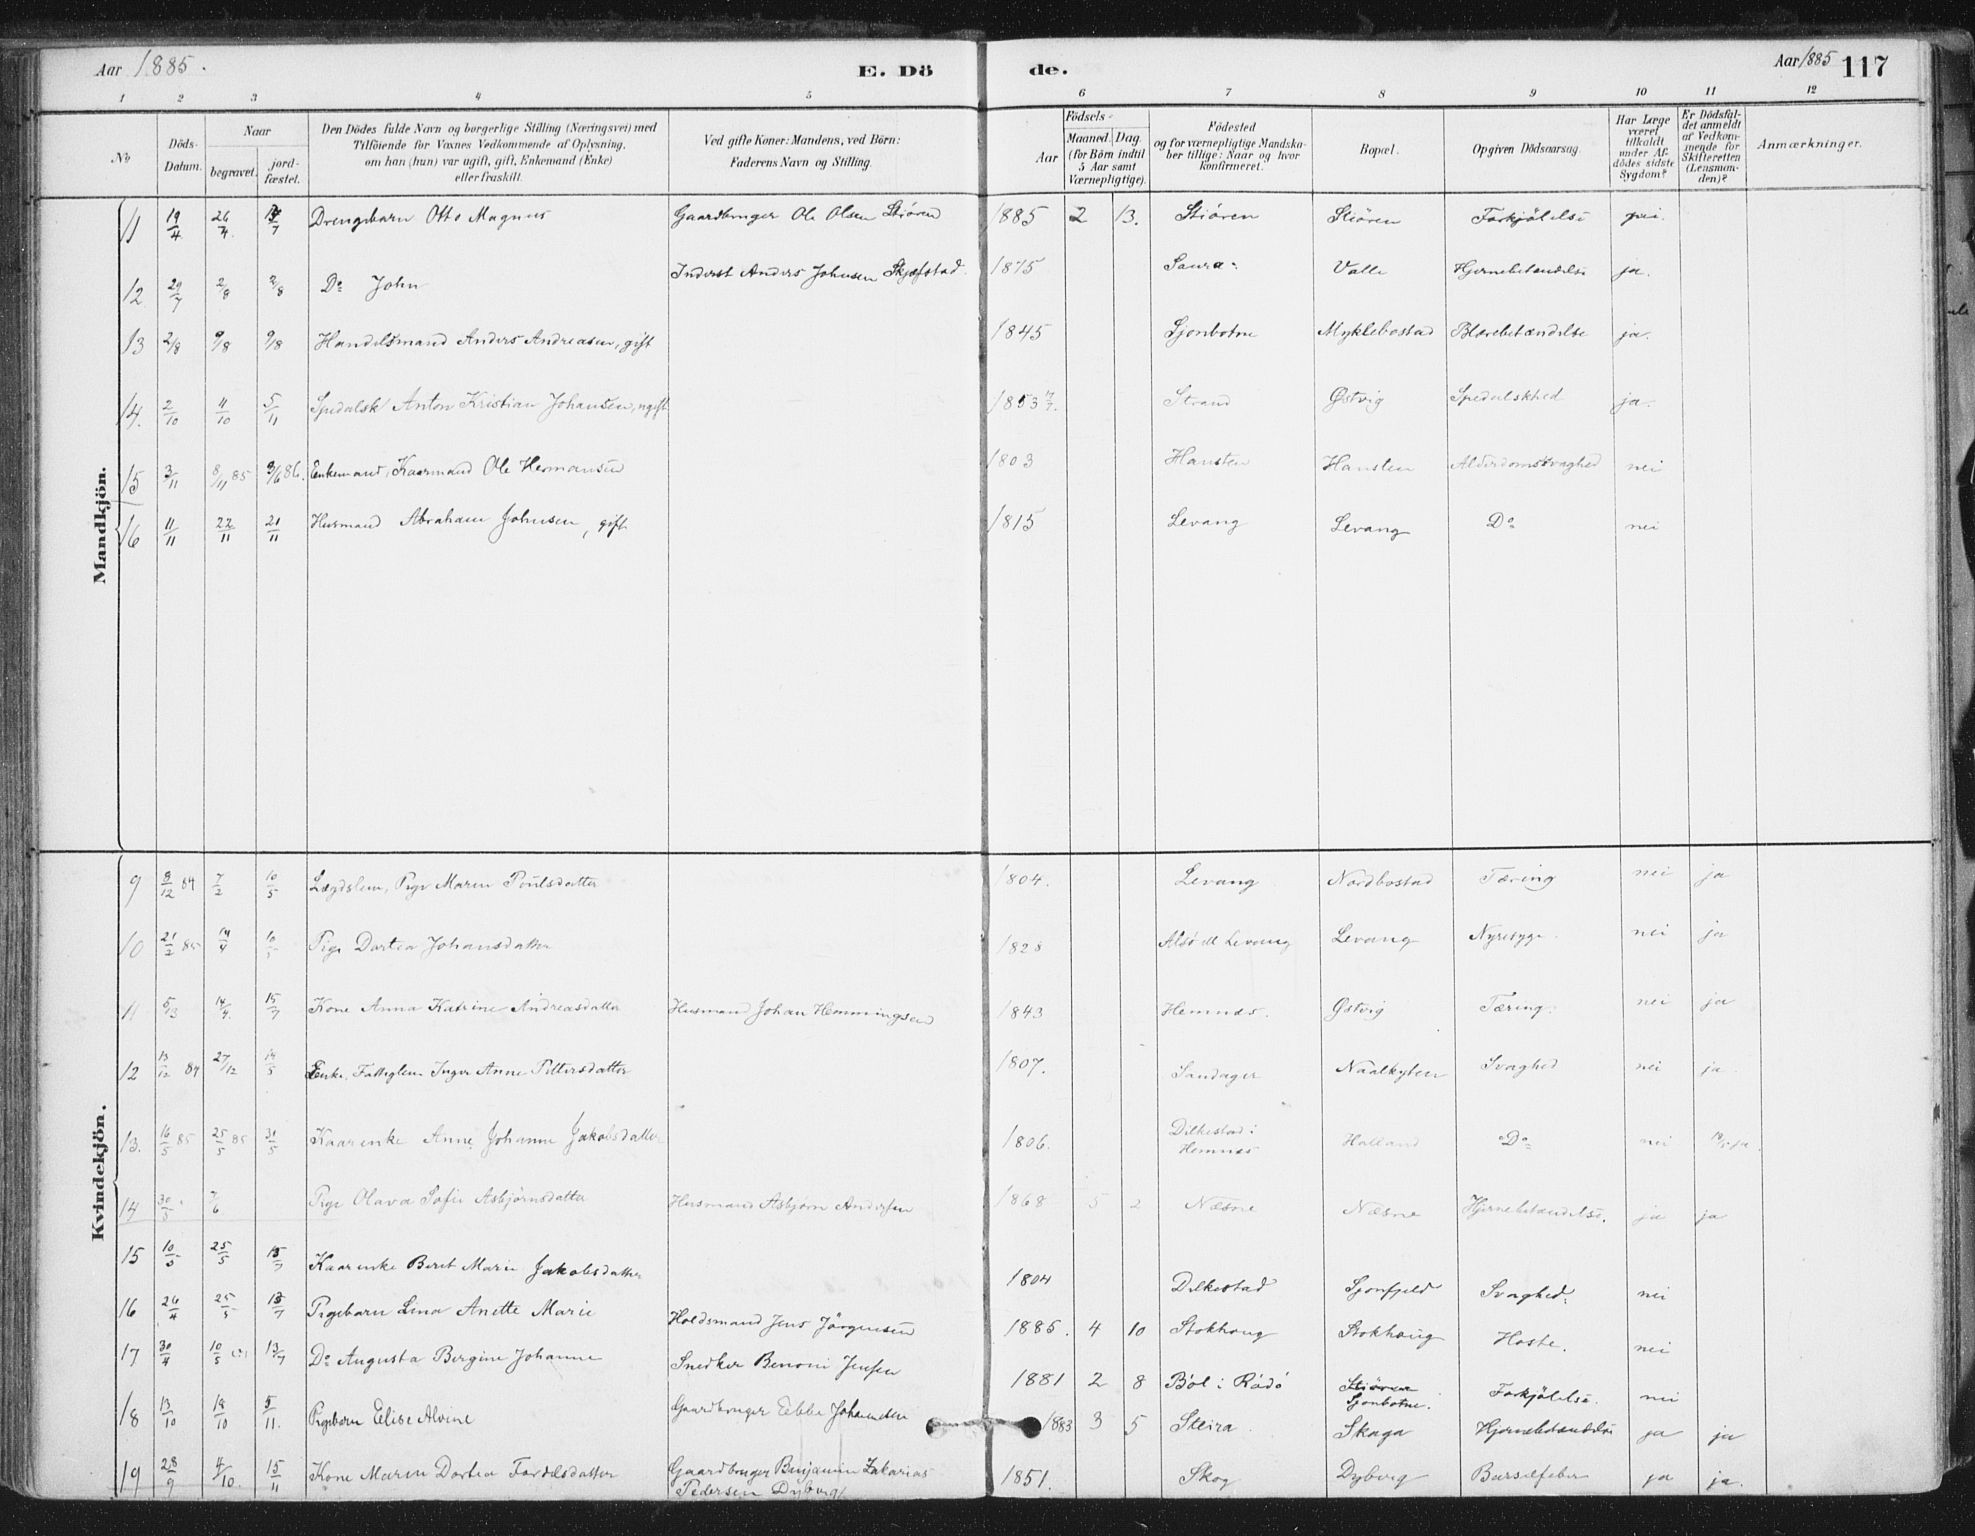 Aar 1885.
E. Dö
de.
Aar 1885 117
1 2 3 4 5 6 7 8 9 10 11 12
No
Döds-
Datum.
Naar
begravet.
jord-
fæstet.
Den Dödes fulde Navn og borgerlige Stilling (Næringsvei) med
Tilföiende for Voxnes Vedkommende af Oplysning,
om han (hun) var ugift, gift, Enkemand (Enke)
eller fraskilt.
Ved gifte Koner: Mandens, ved Börn:
Faderens Navn og Stilling.
Födsels-
Aar
Maaned. Dag.
(for Börn indtil
5 Aar samt
Værnepligtige).
Födested
og for værnepligtige Mandska-
ber tillige: Naar og hvor
konfirmeret.
Bopæl.
Opgiven Dödsaarsag.
Har Læge
været
tilkaldt
under Af-
dödes sidste
Sygdom?
Er Dödsfal-
det anmeldt
af Vedkom-
mende for
Skifteretten
(Lensman-
den)?
Anmærkninger.
Mandkjön.
11 19/4 26/4 /7 Drengebarn Otto Magnus Gaardbruger Ole Olsen Stiören 1885 2 13. Stiören Stiören Forkjölelse nei.
12 29/7 2/8 2/8 Do John Inderst Anders Johnsen Skjefstad. 1875 Saura Valle Hjernebetændelse ja.
13 2/8 9/8 9/8 Handelsmand Anders Andreasen, gift 1845 Sjonbotne Myklebostad Blærebetændelse ja.
14. 2/10 4/10 5/11 Spedalsk Anton Kristian Johansen, ugift 1853 7/7. Strand Østvig Spedalskhed ja.
15 3/11 8/11 85 9/6 86. Enkemand, Kaarmand Ole Hermansen 1803 Hansten Hansten Alderdomssvaghed nei
16 11/11 22/11 21/11 Husmand Abraham Johnsen, gift 1815 Levang Levang Do nei
Kvindekjön.
9 8/12 84 7/2 10/5 Lægdslem, Pige Maren Poulsdatter 1804. Levang Nordbostad Tæring nei ja
10 21/2 85 14/4 10/5 Pige Dortea Johansdatter 1828 Alsö Levang Levang Nyresyge nei ja
11 5/3 14/4. 15/7 Kone Anna Katrine Andreasdatter Husmand Johan Hemmingsen 1843 Hemnæs. Østvig Tæring. nei ja
12 13/12 84 27/12 14/5 Enke, Fattiglem Inger Anne Pettersdatter 1807. Sandager Naalkyten Svaghed nei ja.
13. 16/5 85 25/5 85 31/5 Kaarenke Anne Johanne Jakobsdatter 1806. Dilkestad i
Hemnæs Holland Do nei 18/5 ja.
14 30/5 7/6 Pige Olava Sofie Asbjörnsdatter Husmand Asbjørn Andersen 1868 5 2 Næsne Næsne Hjernebetændelse. ja ja
15 10/5 25/5 13/7 Kaarenke Beret Marie Jakobsdatter 1804 Dilkestad Sjonfjeld Svaghed. nei
16 26/4 25/5 13/7 Pigebarn Lina Anette Marie Holdsmand Jens Jörgensen 1885. 4 10 Stokhaug Stokhaug Hoste. nei
17 30/4 10/5 13/7 Do Augusta Bergine Johanne Snedker Benoni Jensen 1881 2 8 Böl i Rödö Stiören
Sjonbotne. Forkjölelse. nei
18 13/10 18/10 5/11. Pigebarn Elise Alvine Gaardbruger Ebbe Johansen 1883 3 5 Steira Skaga Hjernebetændelse ja ja
19 28/9 4/10. 15/11 Kone Maren Dortea Fordelsdatter Gaardbruger Benjamin Zakarias
Pedersen Dyborg 1851. Skog Dyborg Barselfeber ja ja.